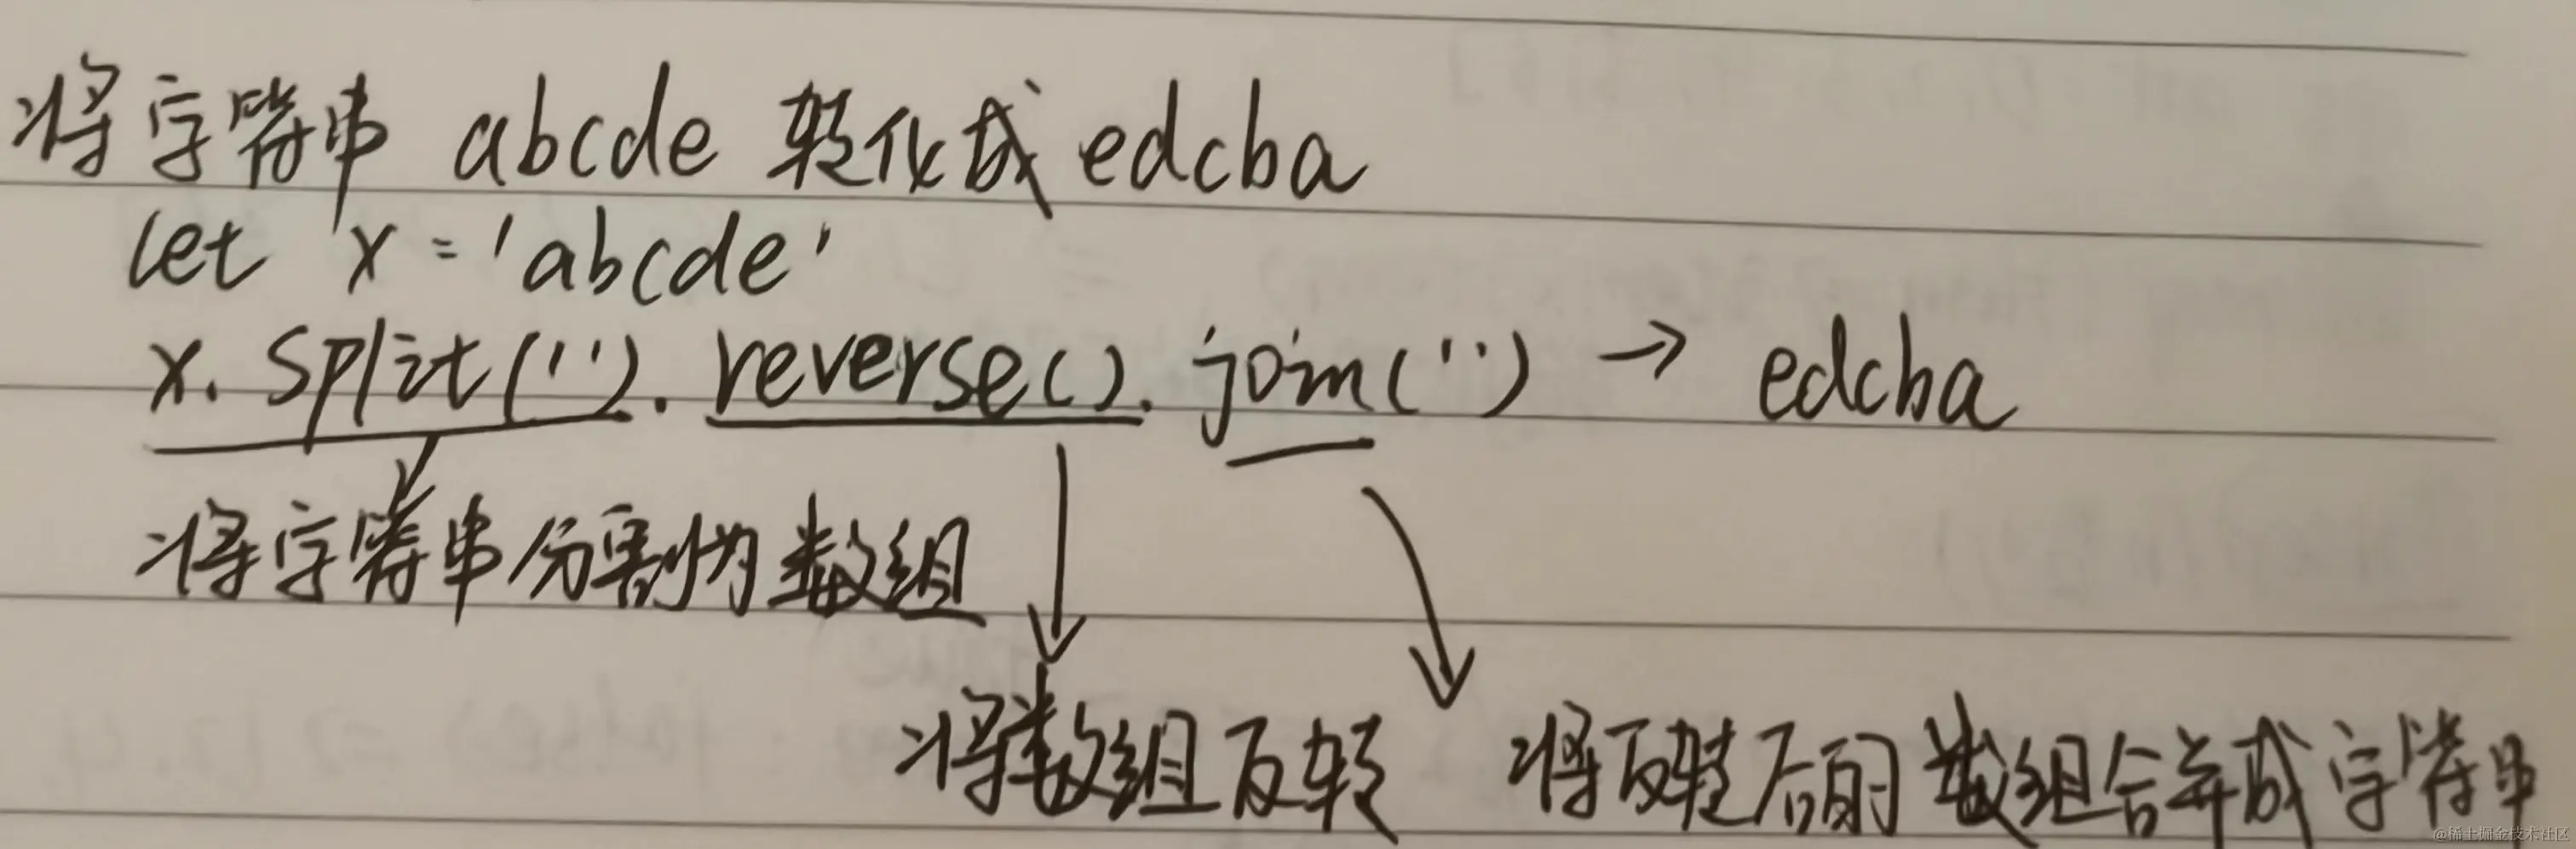 将字符串 abcde 转化成 edcba
let x = 'abcde'
x.split('').reverse().join('') → edcba
将字符串分割为数组
将数组反转 将反转后的数组合并成字符串
@稀土掘金技术社区